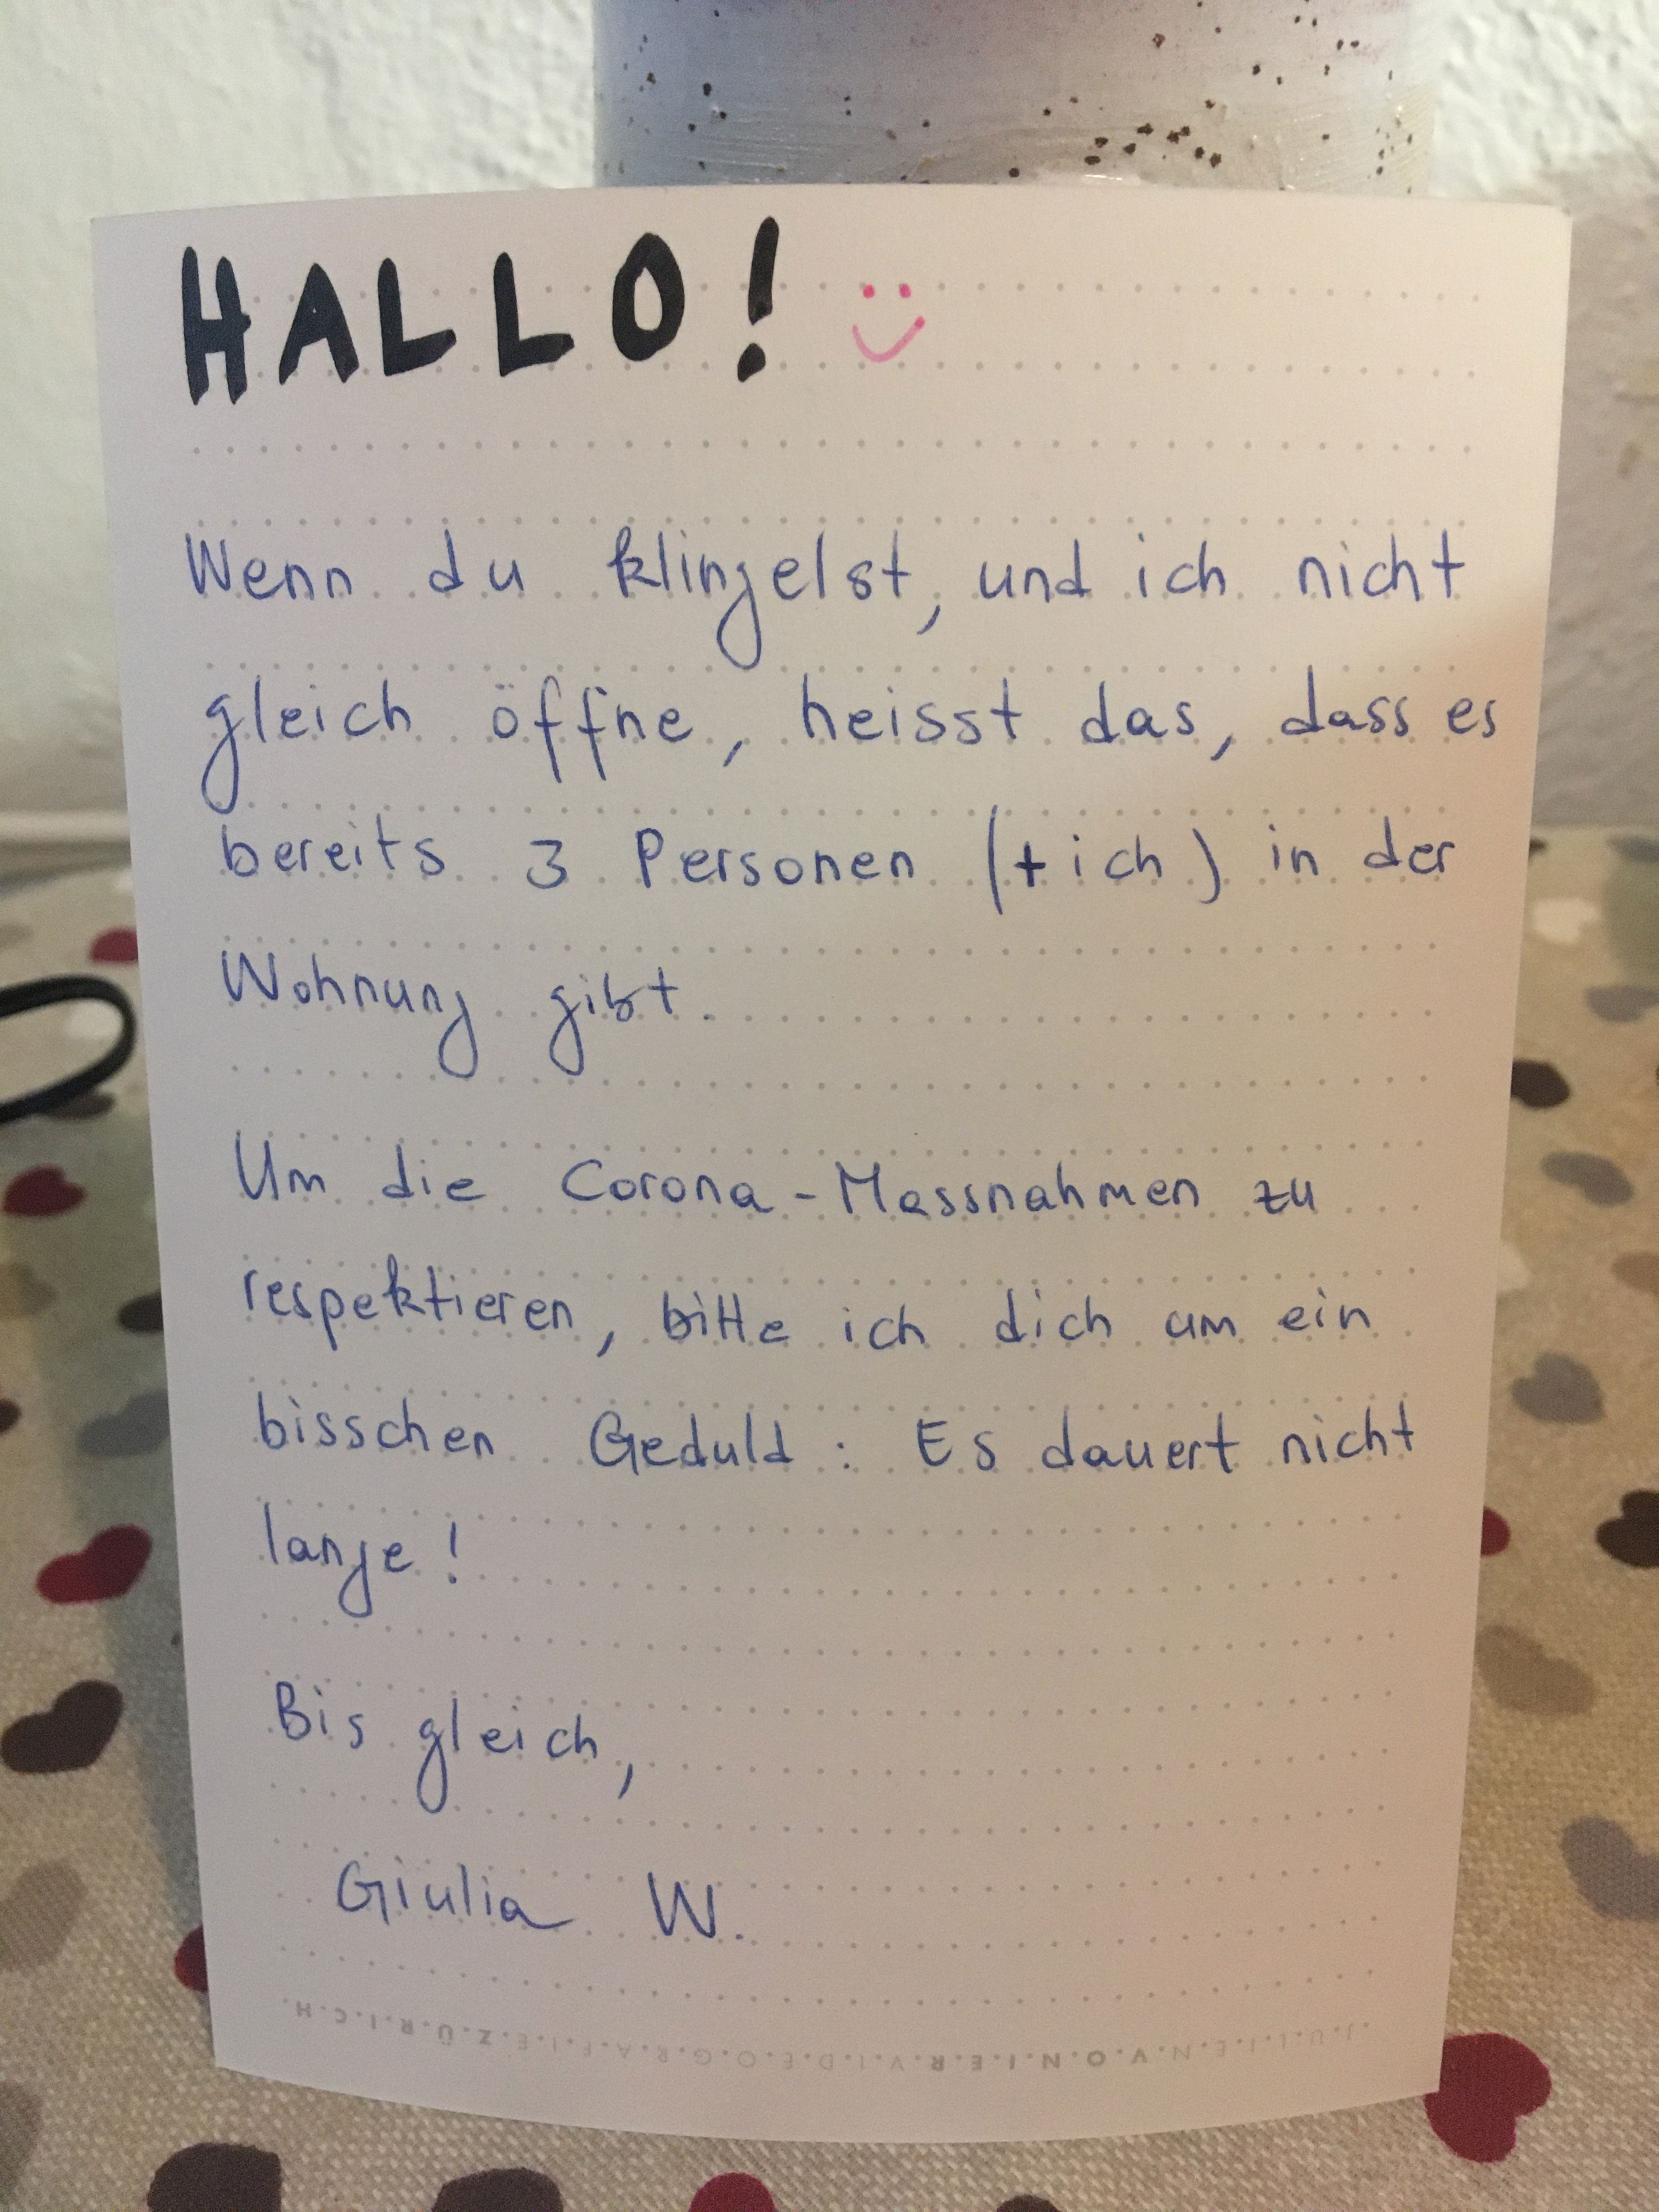 HALLO! :)
Wenn du klingelst, und ich nicht
gleich öffne, heisst das, dass es
bereits 3 Personen (+ich) in der
Wohnung gibt.
Um die Corona-Massnahmen zu
respektieren, bitte ich dich um ein
bisschen Geduld: Es dauert nicht
lange!
Bis gleich,
Giulia W.
J.U.L.I.E.N.V.O.N.I.E.R.V.I.D.E.O.G.R.A.F.I.E.Z.Ü.R.I.C.H.